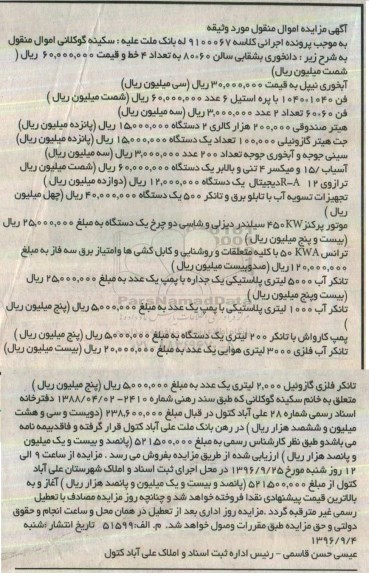 آگهی مزایده اموال منقول مورد وثیقه
به موجب پرونده اجرائی کلاسه ۹۱۰۰۰۶۷ له بانک ملت علیه : سکینه گوکلانی اموال منقول
به شرح زیر : دانخوری بشقابی سالن ۶۰×۸۰ به تعداد ۴ خط و قیمت ۶۰,۰۰۰,۰۰۰ ریال (
شصت میلیون ریال)
آبخوری نیپل به قیمت ۳۰,۰۰۰,۰۰۰ ریال (سی میلیون ریال)
فن ۱۰۴۰×۱۰۴۰ با پره استیل ۶ عدد ۶۰,۰۰۰,۰۰۰ ریال (شصت میلیون ریال)
فن ۶۰×۶۰ تعداد ۲ عدد ۳,۰۰۰,۰۰۰ ریال (سه میلیون ریال)
هیتر صندوقی ۲۰۰,۰۰۰ هزار کالری ۲ دستگاه ۱۵,۰۰۰,۰۰۰ ریال (پانزده میلیون ریال)
جت هیتر گازوئیلی ۱۰۰,۰۰۰ تعداد یک دستگاه ۱۵,۰۰۰,۰۰۰ ریال (پانزده میلیون ریال)
سینی جوجه و آبخوری جوجه تعداد ۲۰۰ عدد ۳,۰۰۰,۰۰۰ ریال (سه میلیون ریال)
آسیاب /۱۵ و میکسر ۴ تنی و بالابر یک دستگاه ۶۰,۰۰۰,۰۰۰ ریال (شصت میلیون ریال
ترازوی R-A ۱۲ دیجیتال یک دستگاه ۱۲,۰۰۰,۰۰۰ ریال (دوازده میلیون ریال)
تجهیزات تسویه آب با تابلو برق و تانکر ۵۰۰ یک دستگاه ۴۰,۰۰۰,۰۰۰ ریال (چهل میلیون
ریال )
موتور پرکنز ۴۵۰KW سیلندر دیزلی و شاسی دو چرخ یک دستگاه به مبلغ ۲۵,۰۰۰,۰۰۰ ریال
(بیست و پنج میلیون ریال)
ترانس ۵۰ KWA با کلیه متعلقات و روشنایی و کابل کشی ها وامتیاز برق سه فاز به مبلغ
۱۲۰,۰۰۰,۰۰۰ ریال (صدوبیست میلیون ریال)
تانکر آب ۵۰۰۰ لیتری پلاستیکی یک جداره با پمپ یک عدد به مبلغ ۲۵,۰۰۰,۰۰۰ ریال
(بیست وپنج میلیون ریال)
تانکر آب ۱۰۰۰ لیتری پلاستیکی با پمپ یک عدد به مبلغ ۵,۰۰۰,۰۰۰ ریال (پنج میلیون ریال
)
پمپ کارواش با تانکر ۲۰۰ لیتری یک دستگاه به مبلغ ۵,۰۰۰,۰۰۰ ریال (پنج میلیون ریال )
تانکر آب فلزی ۳۰۰۰ لیتری هوایی یک عدد به مبلغ ۲۰,۰۰۰,۰۰۰ ریال (بیست میلیون ریال)
تانکر فلزی گازوئیل ۲,۰۰۰ لیتری یک عدد به مبلغ ۵,۰۰۰,۰۰۰ ریال (پنج میلیون ریال )
متعلق به خانم سکینه گوکلانی که طبق سند رهنی شماره ۲۴۱۰- ۱۳۸۸/۰۴/۰۲ دفترخانه
اسناد رسمی شماره ۲۸ علی آباد کتول در قبال مبلغ ۲۳۸,۶۰۰,۰۰۰ (دویست و سی و هشت
میلیون و ششصد هزار ریال ) در رهن بانک ملت علی آباد کتول قرار گرفته و فاقدبیمه نامه
می باشدو طبق نظر کارشناس رسمی به مبلغ ۵۲۱۵۰۰,۰۰۰ (پانصد و بیست و یک میلیون
و پانصد هزار ریال ) ارزیابی شده از طریق مزایده بفروش می رسد . مزایده از ساعت ۹ الی
۱۲ روز شنبه مورخ ۱۳۹۶/۹/۲۵ در محل اجرای ثبت اسناد و املاک شهرستان علی آباد
کتول از مبلغ ۵۲۱۵۰۰,۰۰۰ (پانصد و بیست و یک میلیون و پانصد هزار ریال ) آغاز و به
بالاترین قیمت پیشنهادی نقدا فروخته خواهد شد و چنانچه روز مزایده مصادف با تعطیل
رسمی غیر مترقبه گردد .مزایده روز اداری بعد از تعطیل در همان محل و ساعت انجام و حقوق
دولتی و حق مزایده طبق مقررات وصول خواهد شد. م. الف:۵۱۵۹۹ تاریخ انتشار :شنبه
۱۳۹۶/۹/۴
عیسی حسن قاسمی - رئیس اداره ثبت اسناد و املاک علی آباد کتول